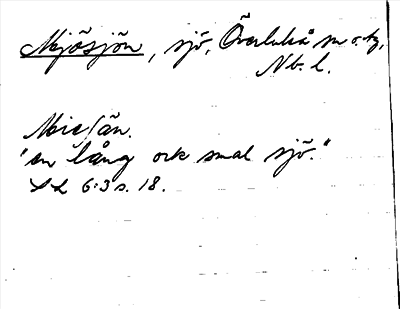 Mjösjön, sjö, Överluleå sn o. tg,
Nb. l.
"en lång ock smal sjö."
LL 6:3 s. 18.